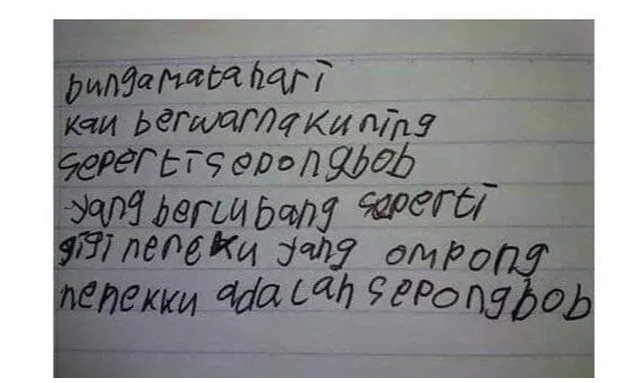 bungamatahari
kau berwarna kuning
seperti sepongbob
yang berlubang seperti
gigi neneku yang ompong
nenekku adalah sepongbob